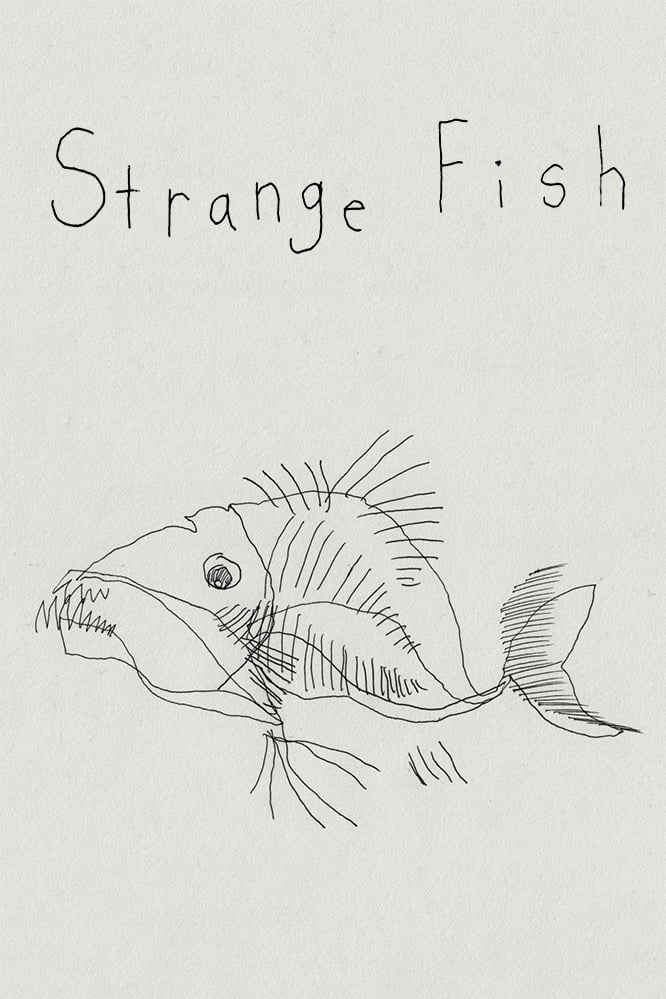 Strange Fish